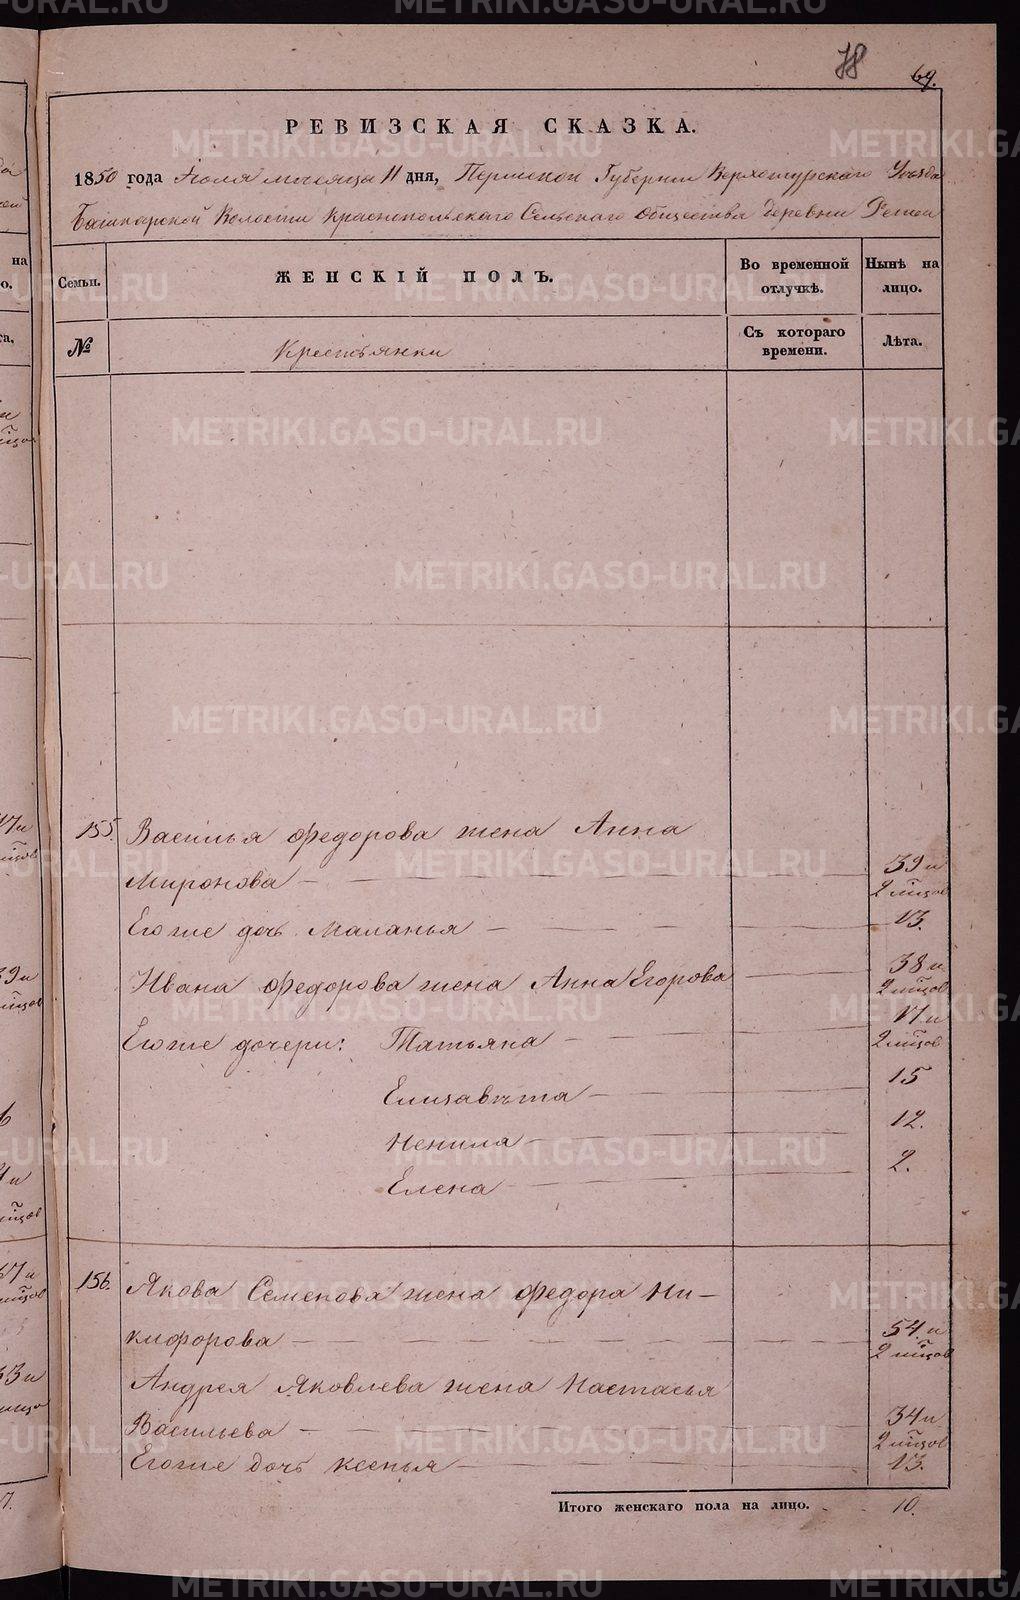 78 69.
РЕВИЗСКАЯ СКАЗКА.
1850 года Июля месяца 11 дня, Пермской Губернии Верхотурскаго Уѣзда
Башкарской Волости Краснопольскаго Сельскаго Общества деревни
Семьи. ЖЕНСКІЙ ПОЛЪ. Во временной отлучкѣ. Нынѣ на лицо.
№ Крестьянки Съ котораго времени. Лѣта.
155. Василья Федорова жена Анна
Миронова 39 и 2 мѣсов
Его же дочь Маланья 13.
Ивана Федорова жена Анна Егорова 38 и 2 мѣсов
Его же дочери: Татьяна 17 и 2 мѣсов
Елизавѣта 15
Ненила 12.
Елена 2.
156. Якова Семенова жена Федора Ни-
кифорова 54 и 2 мѣсов
Андрея Яковлева жена Настасья
Васильева 34 и 2 мѣсов
Его же дочь Ксенья 13.
Итого женскаго пола на лицо. 10.
METRIKI.GASO-URAL.RU